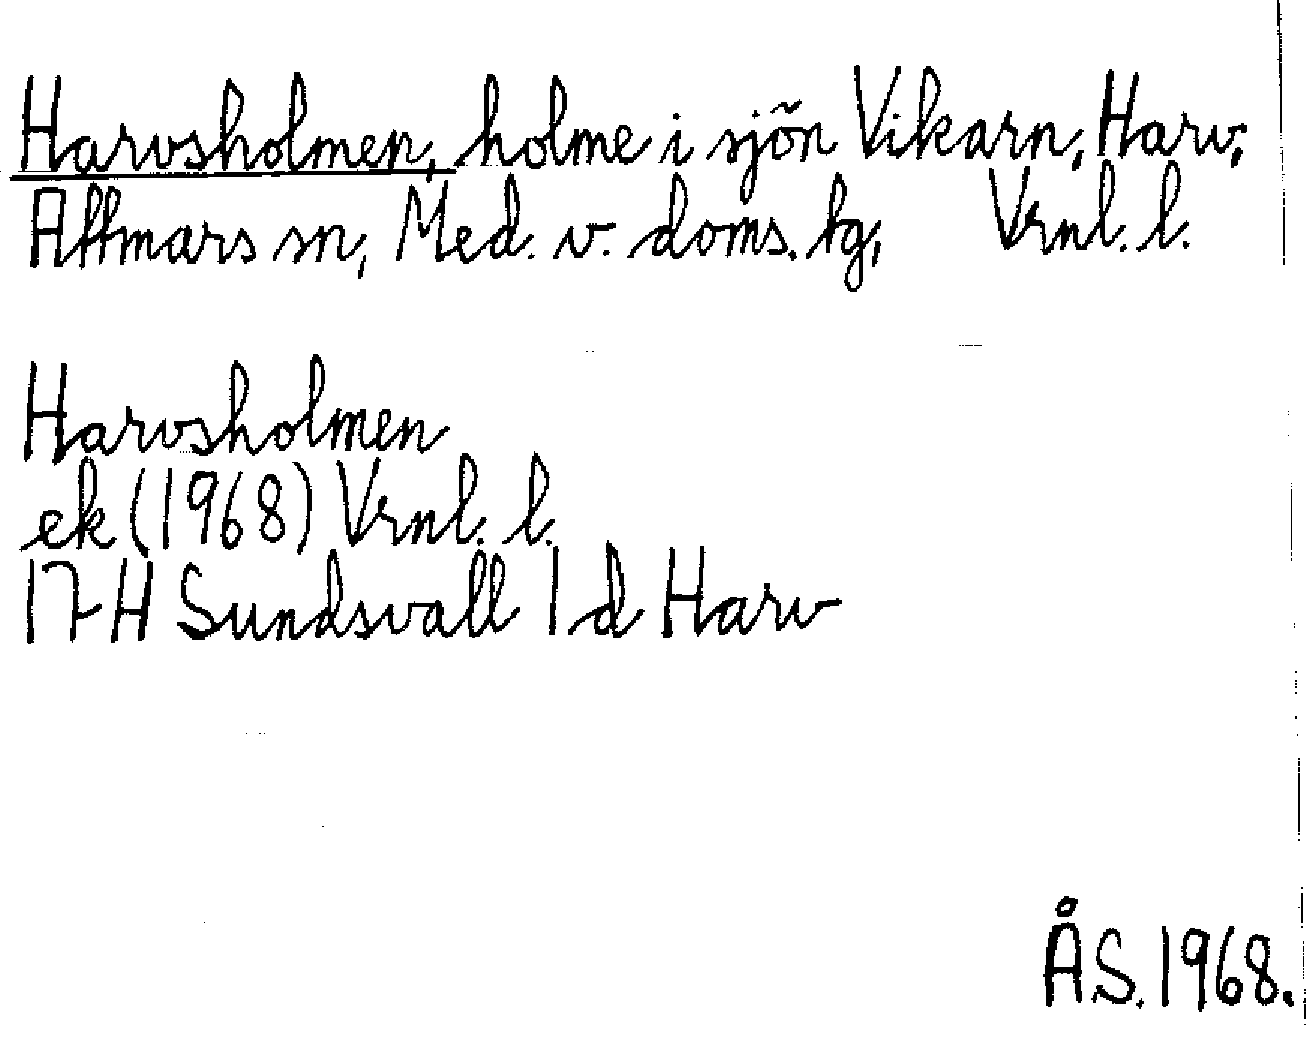 Harvsholmen, holme i sjön Vikarn, Harv,
Attmars sn, Med. v. doms. tg, Vrnl. l.
Harvsholmen
ek (1968) Vrnl. l.
17H Sundsvall 1d Harv
ÅS. 1968.